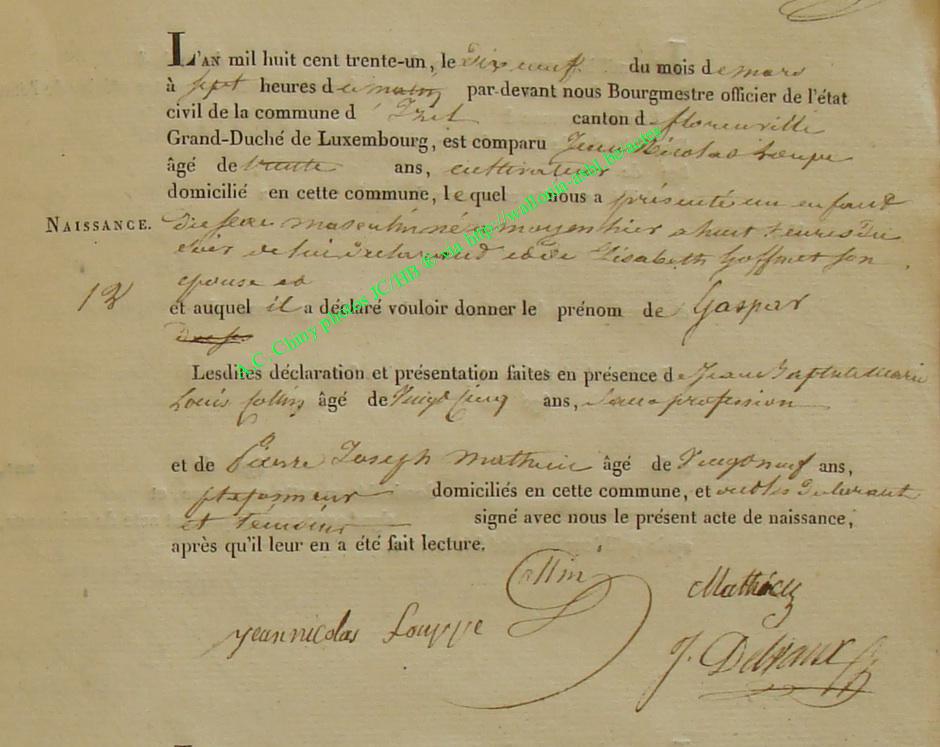 L'AN mil huit cent trente-un, le Dix neuf du mois de mars
à sept heures du matin par-devant nous Bourgmestre officier de l'état
civil de la commune d' Izel canton d florenville
Grand-Duché de Luxembourg, est comparu Jean Nicolas Loupe
âgé de trente ans, cultivateur
domicilié en cette commune, lequel nous a présenté un enfant
NAISSANCE. du sexe masculin né à moyen hier a huit heures du
soir de lui déclarant et de Elisabeth Goffinet son
12 epouse et
et auquel il a déclaré vouloir donner le prénom de Gaspar
Lesdites déclaration et présentation faites en présence de Jean Baptiste Marie
Louis Collin âgé de Vingt Cinq ans, sans profession
et de Pierre Joseph Mathieu âgé de Vingt neuf ans,
plafonneur domiciliés en cette commune, et ont les déclarant
et témoins signé avec nous le présent acte de naissance,
après qu'il leur en a été fait lecture.
Collin
Mathieu
jean nicolas Louppe
J. Delvaux
A.C. Chiny photos JC/HB & via http://wallonia-asbl.be-actes